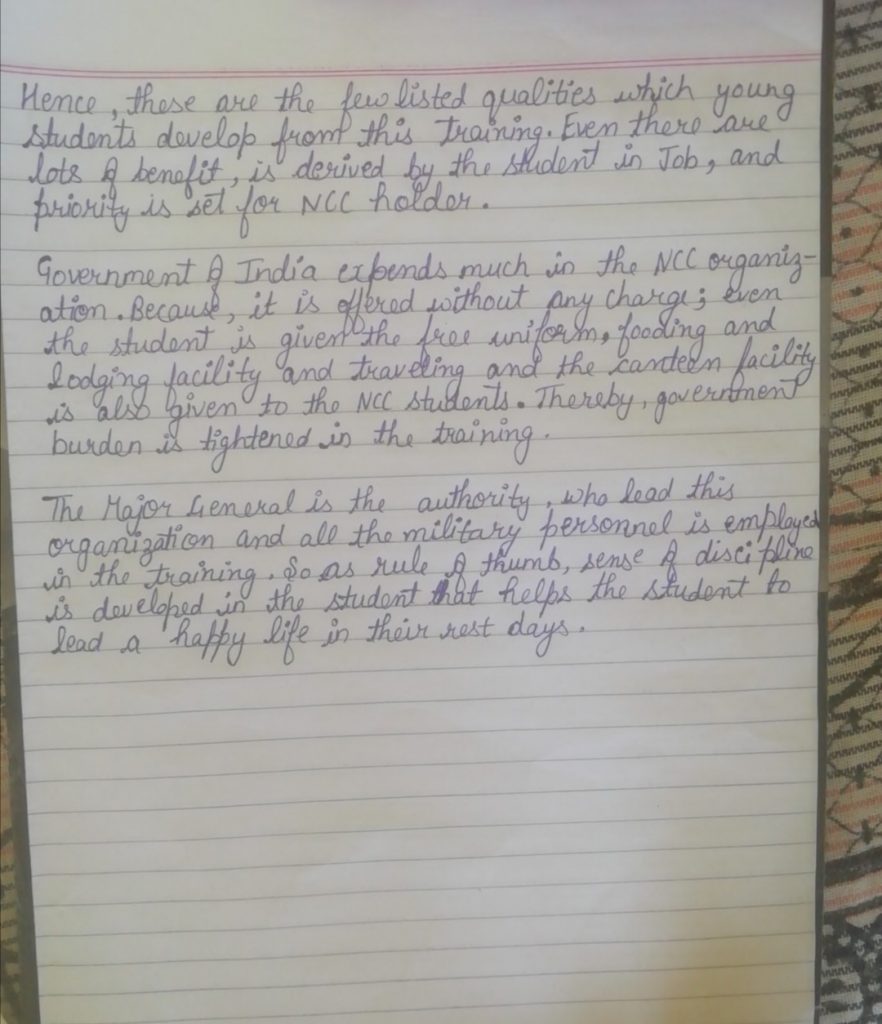 Hence, these are the few listed qualities which young
students develop from this training. Even there are
lots of benefit, is derived by the student in Job, and
priority is set for NCC holder.
Government of India expends much in the NCC organiz-
ation. Because, it is offered without any charge; even
the student is given the free uniform, fooding and
lodging facility and traveling and the canteen facility
is also given to the NCC students. Thereby, government
burden is tightened in the training.
The Major General is the authority, who lead this
organization and all the military personnel is employed
in the training. So as rule of thumb, sense of discipline
is developed in the student that helps the student to
lead a happy life in their rest days.